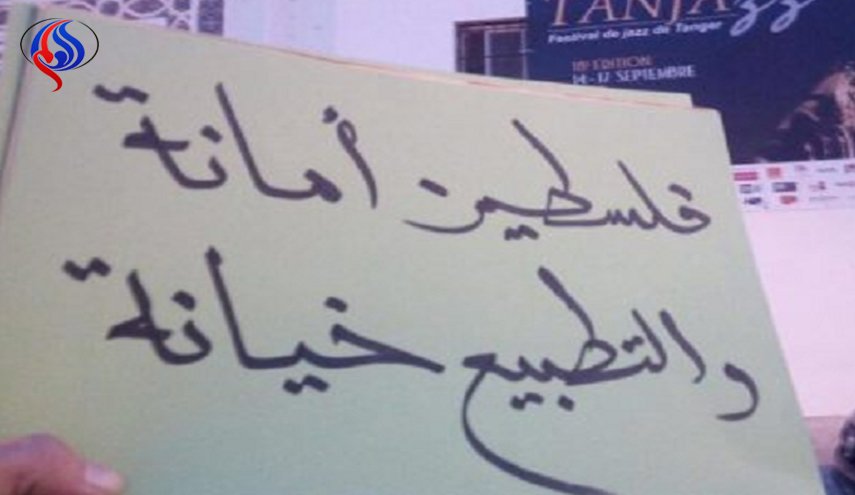 TANJAzz
Festival de jazz de Tanger
18e EDITION
14 - 17 SEPTEMBRE
فلسطين أمانة
والتطبيع خيانة